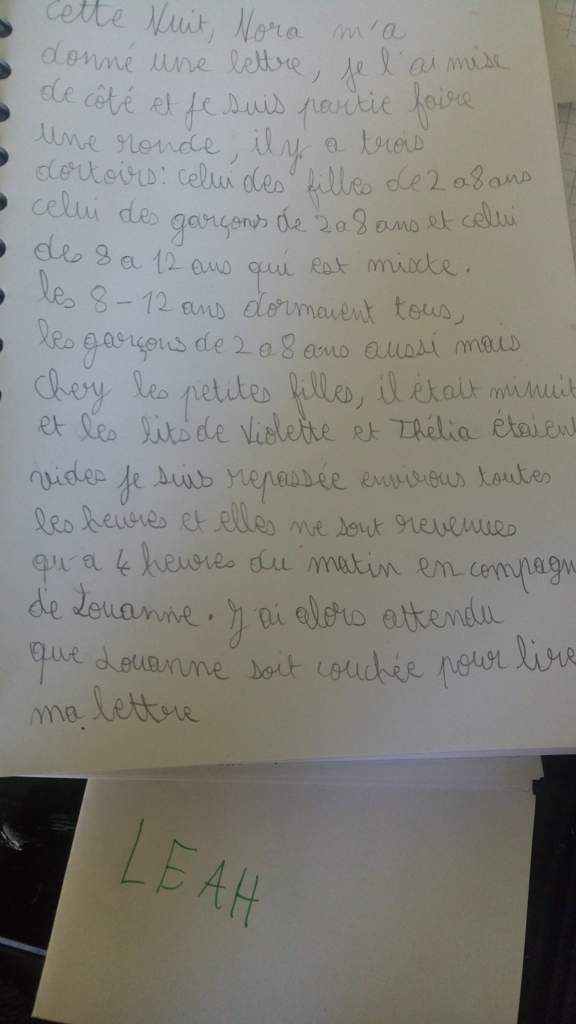 Cette Nuit, Nora m'a
donné une lettre, je l'ai mise
de côté et je suis partie faire
une ronde, il y a trois
dortoirs: celui des filles de 2 a 8 ans
celui des garçons de 2 a 8 ans et celui
des 8 a 12 ans qui est mixte.
les 8-12 ans dormaient tous,
les garçons de 2 a 8 ans aussi mais
chez les petites filles, il était minuit
et les lits de Violette et Thélia étaient
vides je suis repassée environs toutes
les heures et elles ne sont revenues
qu'a 4 heures du matin en compagn
de Louanne. J'ai alors attendu
que Louanne soit couchée pour lire
ma lettre
LEAH